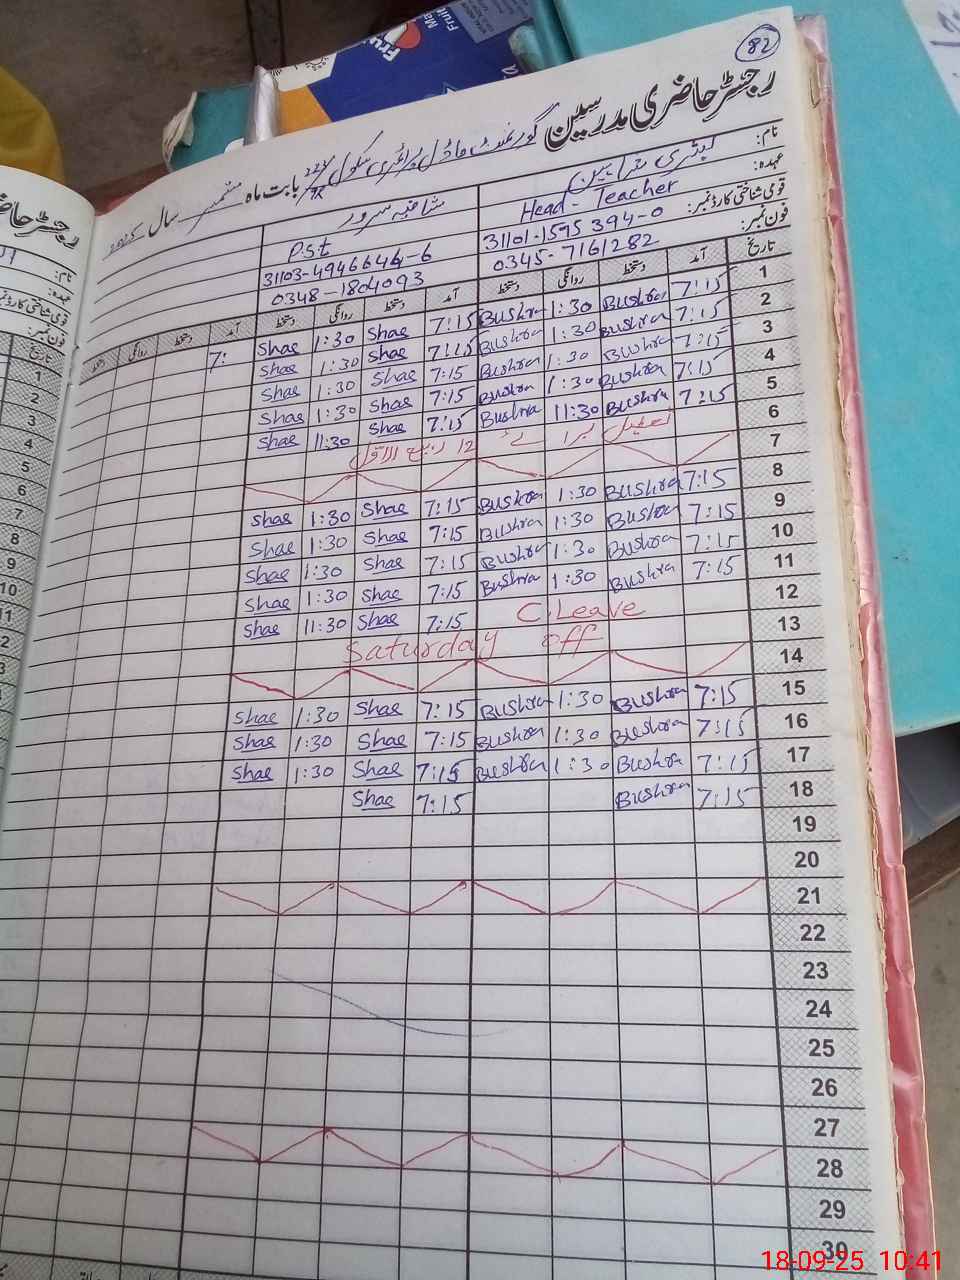 82
رجسٹر حاضری مدرسین گورنمنٹ ماڈل پرائمری سکول بابت ماہ ستمبر سال 2025
نام: بشریٰ شاہین
عہدہ: Head - Teacher P.S.T
قومی شناختی کارڈ نمبر: 31101-1595394-0 31103-4946644-6
فون نمبر: 0345-7161282 0348-1804093
تاریخ آمد دستخط روانگی دستخط آمد دستخط روانگی دستخط آمد دستخط روانگی دستخط
1 7:15 Bushra 1:30 Bushra 7:15 Shae 1:30 Shae 7:
2 7:15 Bushra 1:30 Bushra 7:15 Shae 1:30 Shae
3 7:15 Bushra 1:30 Bushra 7:15 Shae 1:30 Shae
4 7:15 Bushra 1:30 Bushra 7:15 Shae 1:30 Shae
5 7:15 Bushra 11:30 Bushra 7:15 Shae 11:30 Shae
6 تعطیل برائے 12 ربیع الاول
7
8 7:15 Bushra 1:30 Bushra 7:15 Shae 1:30 Shae
9 7:15 Bushra 1:30 Bushra 7:15 Shae 1:30 Shae
10 7:15 Bushra 1:30 Bushra 7:15 Shae 1:30 Shae
11 7:15 Bushra 1:30 Bushra 7:15 Shae 1:30 Shae
12 C.Leave 7:15 Shae 11:30 Shae
13 Saturday off
14
15 7:15 Bushra 1:30 Bushra 7:15 Shae 1:30 Shae
16 7:15 Bushra 1:30 Bushra 7:15 Shae 1:30 Shae
17 7:15 Bushra 1:30 Bushra 7:15 Shae 1:30 Shae
18 7:15 Bushra 7:15 Shae
19
20
21
22
23
24
25
26
27
28
29
30
18-09-25 10:41